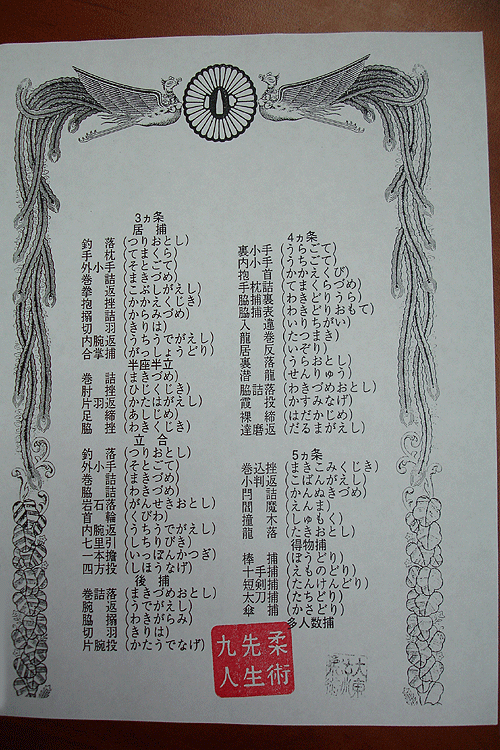 3ヵ条
居　捕
釣　落 (つりおとし)
手　枕 (てまくら)
外小手 (そとごて)
巻　詰 (まきづめ)
拳　返 (こぶしがえし)
抱　挫 (かかえくじき)
搦　詰 (からみづめ)
切　羽 (きりは)
内腕返 (うちうでがえし)
合掌捕 (がっしょうどり)
半座半立
巻　詰 (まきづめ)
肘　挫 (ひじくじき)
片羽返 (かたはがえし)
足　締 (あしじめ)
脇　挫 (わきくじき)
立　合
釣　落 (つりおとし)
外小手 (そとごて)
巻　詰 (まきづめ)
脇　詰 (わきづめ)
岩石落 (がんせきおとし)
首　輪 (くびわ)
内腕返 (うちうでがえし)
七里引 (しちりびき)
一本擔 (いっぽんかつぎ)
四方投 (しほうなげ)
後　捕
巻詰落 (まきづめおとし)
腕　返 (うでがえし)
脇　搦 (わきがらみ)
切　羽 (きりは)
片腕投 (かたうでなげ)
4ヵ条
裏小手 (うらごて)
内小手 (うちごて)
抱　首 (かかえくび)
手枕詰 (てまくらづめ)
脇捕裏 (わきどりうら)
脇捕表 (わきどりおもて)
入　違 (いりちがい)
龍　巻 (たつまき)
居　反 (いぞり)
裏　落 (うらおとし)
潜　龍 (せんりゅう)
脇詰落 (わきづめおとし)
霞　投 (かすみなげ)
裸　締 (はだかじめ)
達磨返 (だるまがえし)
5ヵ条
巻込挫 (まきこみくじき)
小判返 (こばんがえし)
閂　詰 (かんぬきづめ)
閻　魔 (えんま)
撞　木 (しゅもく)
龍　落 (たきおとし)
得物捕
棒　捕 (ぼうどり)
十手捕 (えものどり)
短剣捕 (たんけんどり)
太刀捕 (たちどり)
傘　捕 (かさどり)
多人数捕
柔術
先生
九人